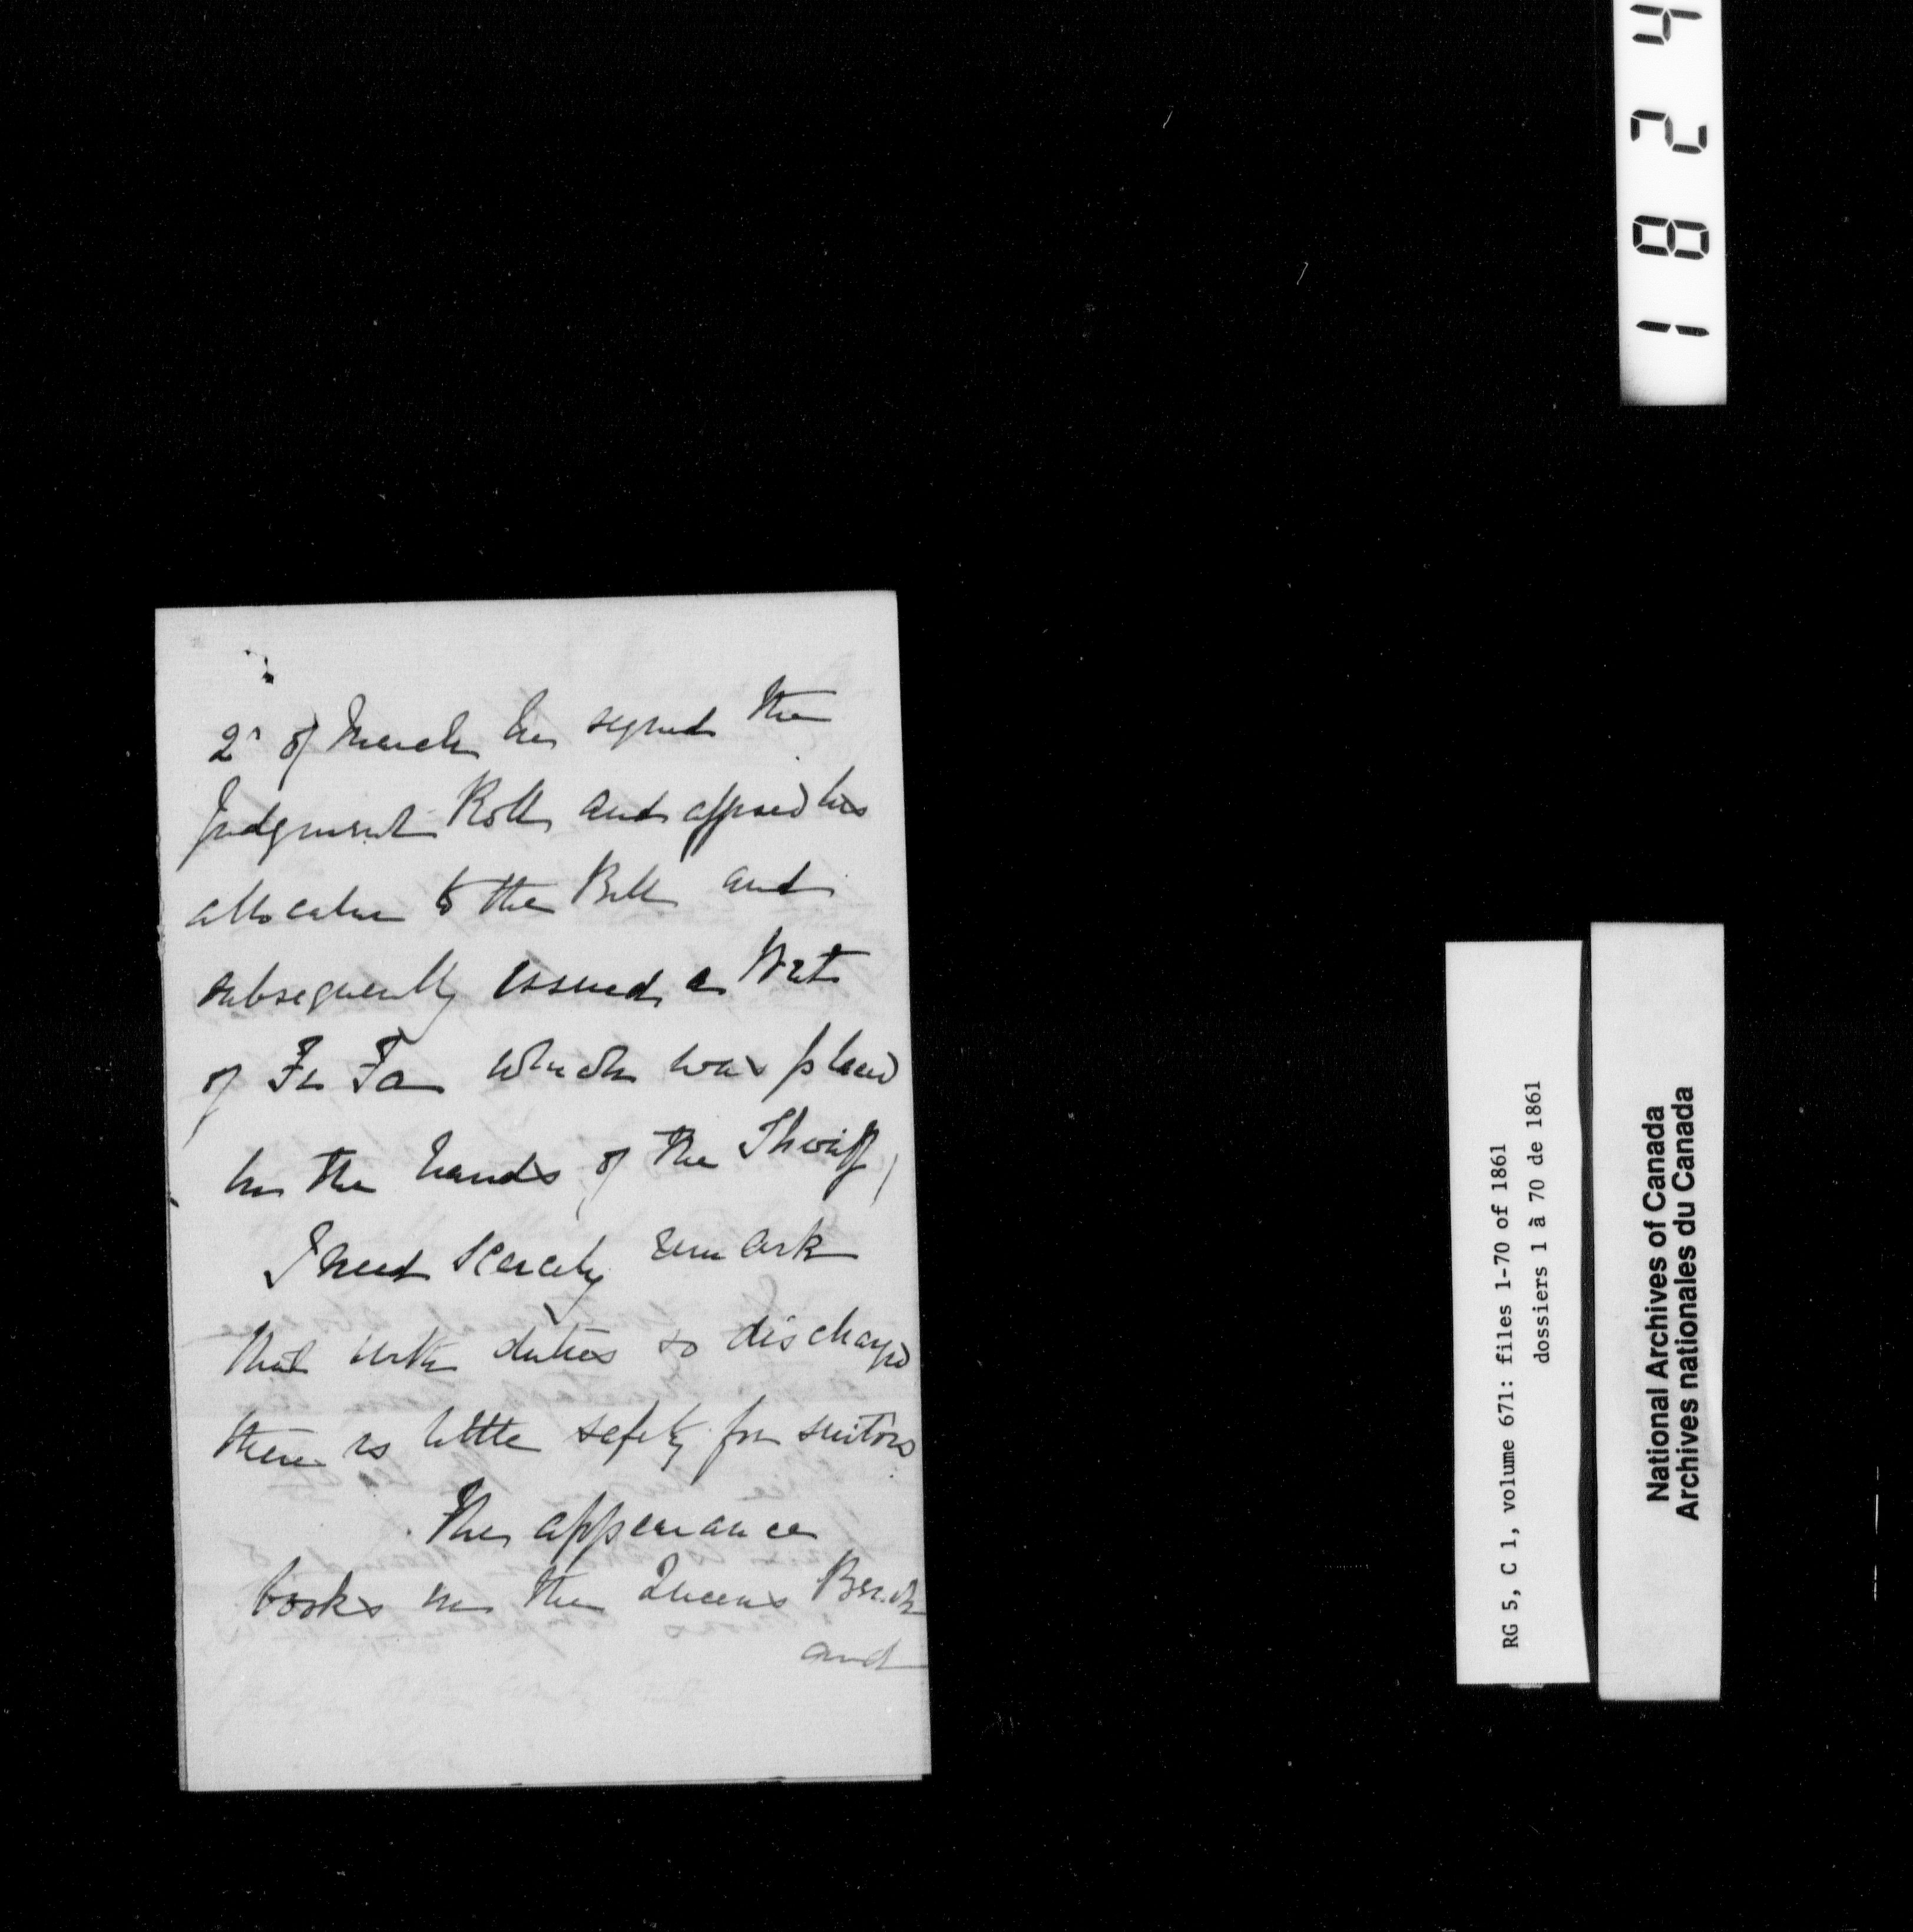 2d of March he signed the
Judgment Roll and affixed his
allocatur to the Bill and
subsequently issued a Writ
of Fi Fa which was placed
in the hands of the Sheriff,
I need scarcely remark
that with duties so discharged
there is little safety for suitors
The appearance
books in the Queens Bench
and
1824
RG 5, C 1, volume 671: files 1-70 of 1861
dossiers 1 à 70 de 1861
National Archives of Canada
Archives nationales du Canada